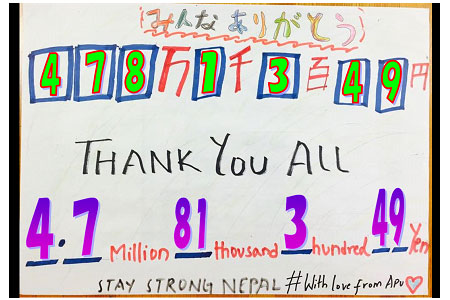 (みんな ありがとう)
478万1千3百49円
THANK YOU ALL
4.7 Million 81 thousand 3 hundred 49 Yen
STAY STRONG NEPAL #With love from Apu